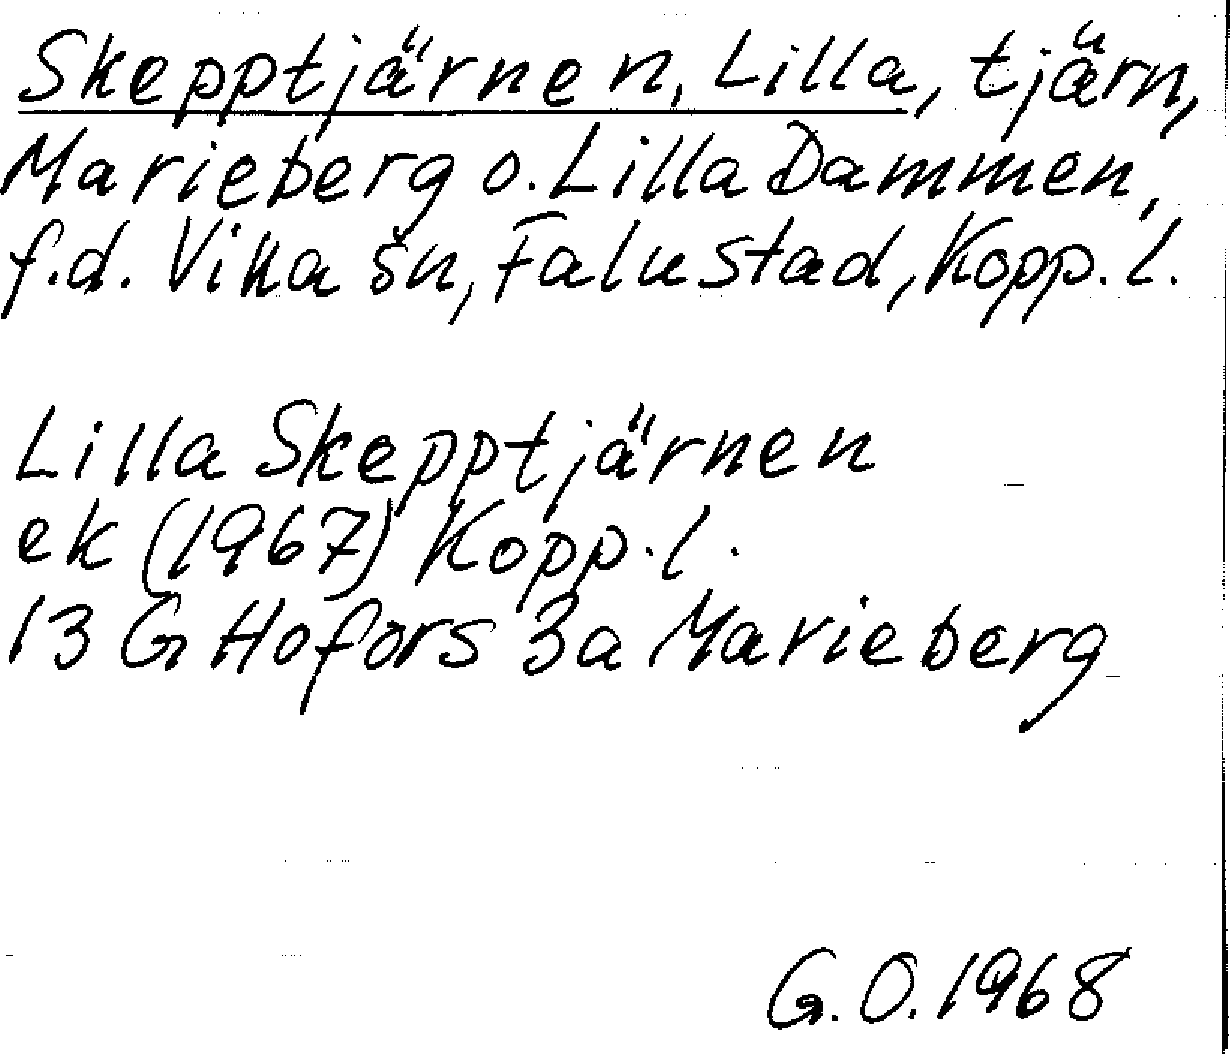 Skepptjärnen, Lilla, tjärn,
Marieberg o. Lilla Dammen,
f.d. Vika sn, Falu stad, Kopp. l.
Lilla Skepptjärnen
ek (1967) Kopp. l.
13 G Hofors 3a Marieberg
G. O. 1968